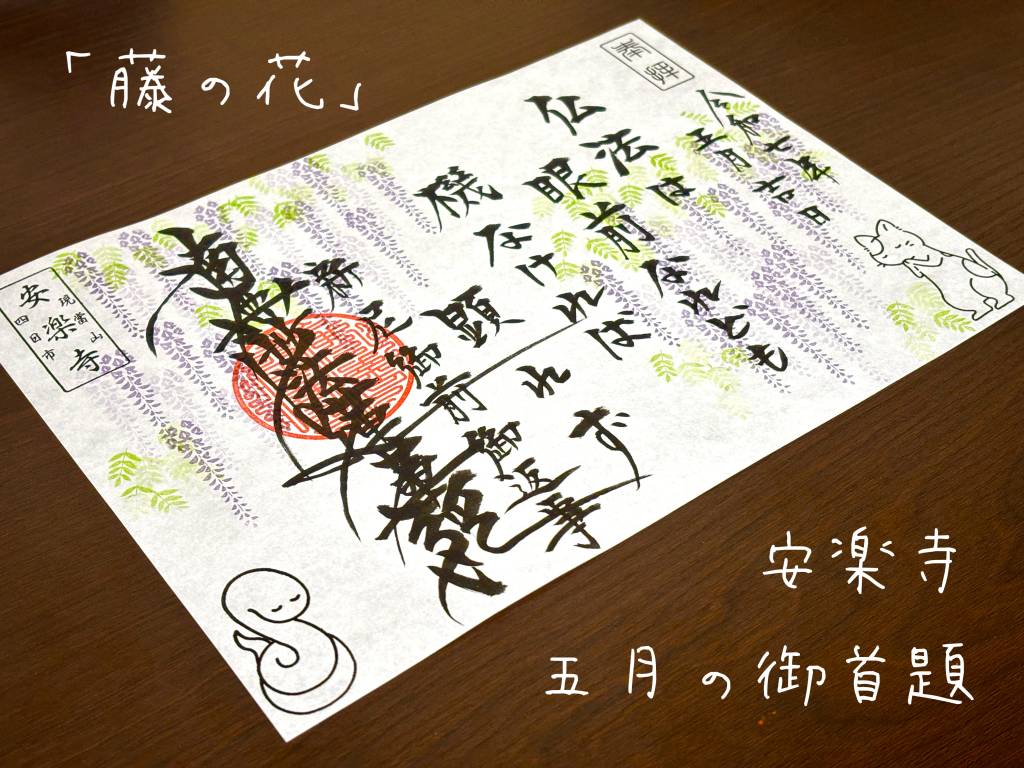 「藤の花」
奉拝
令和七年
五月吉日
仏法は
眼前なれども
機なければ
顕れず
新尼御前御返事
南無妙法蓮華経
現當山
安楽寺
四日市
安楽寺
五月の御首題